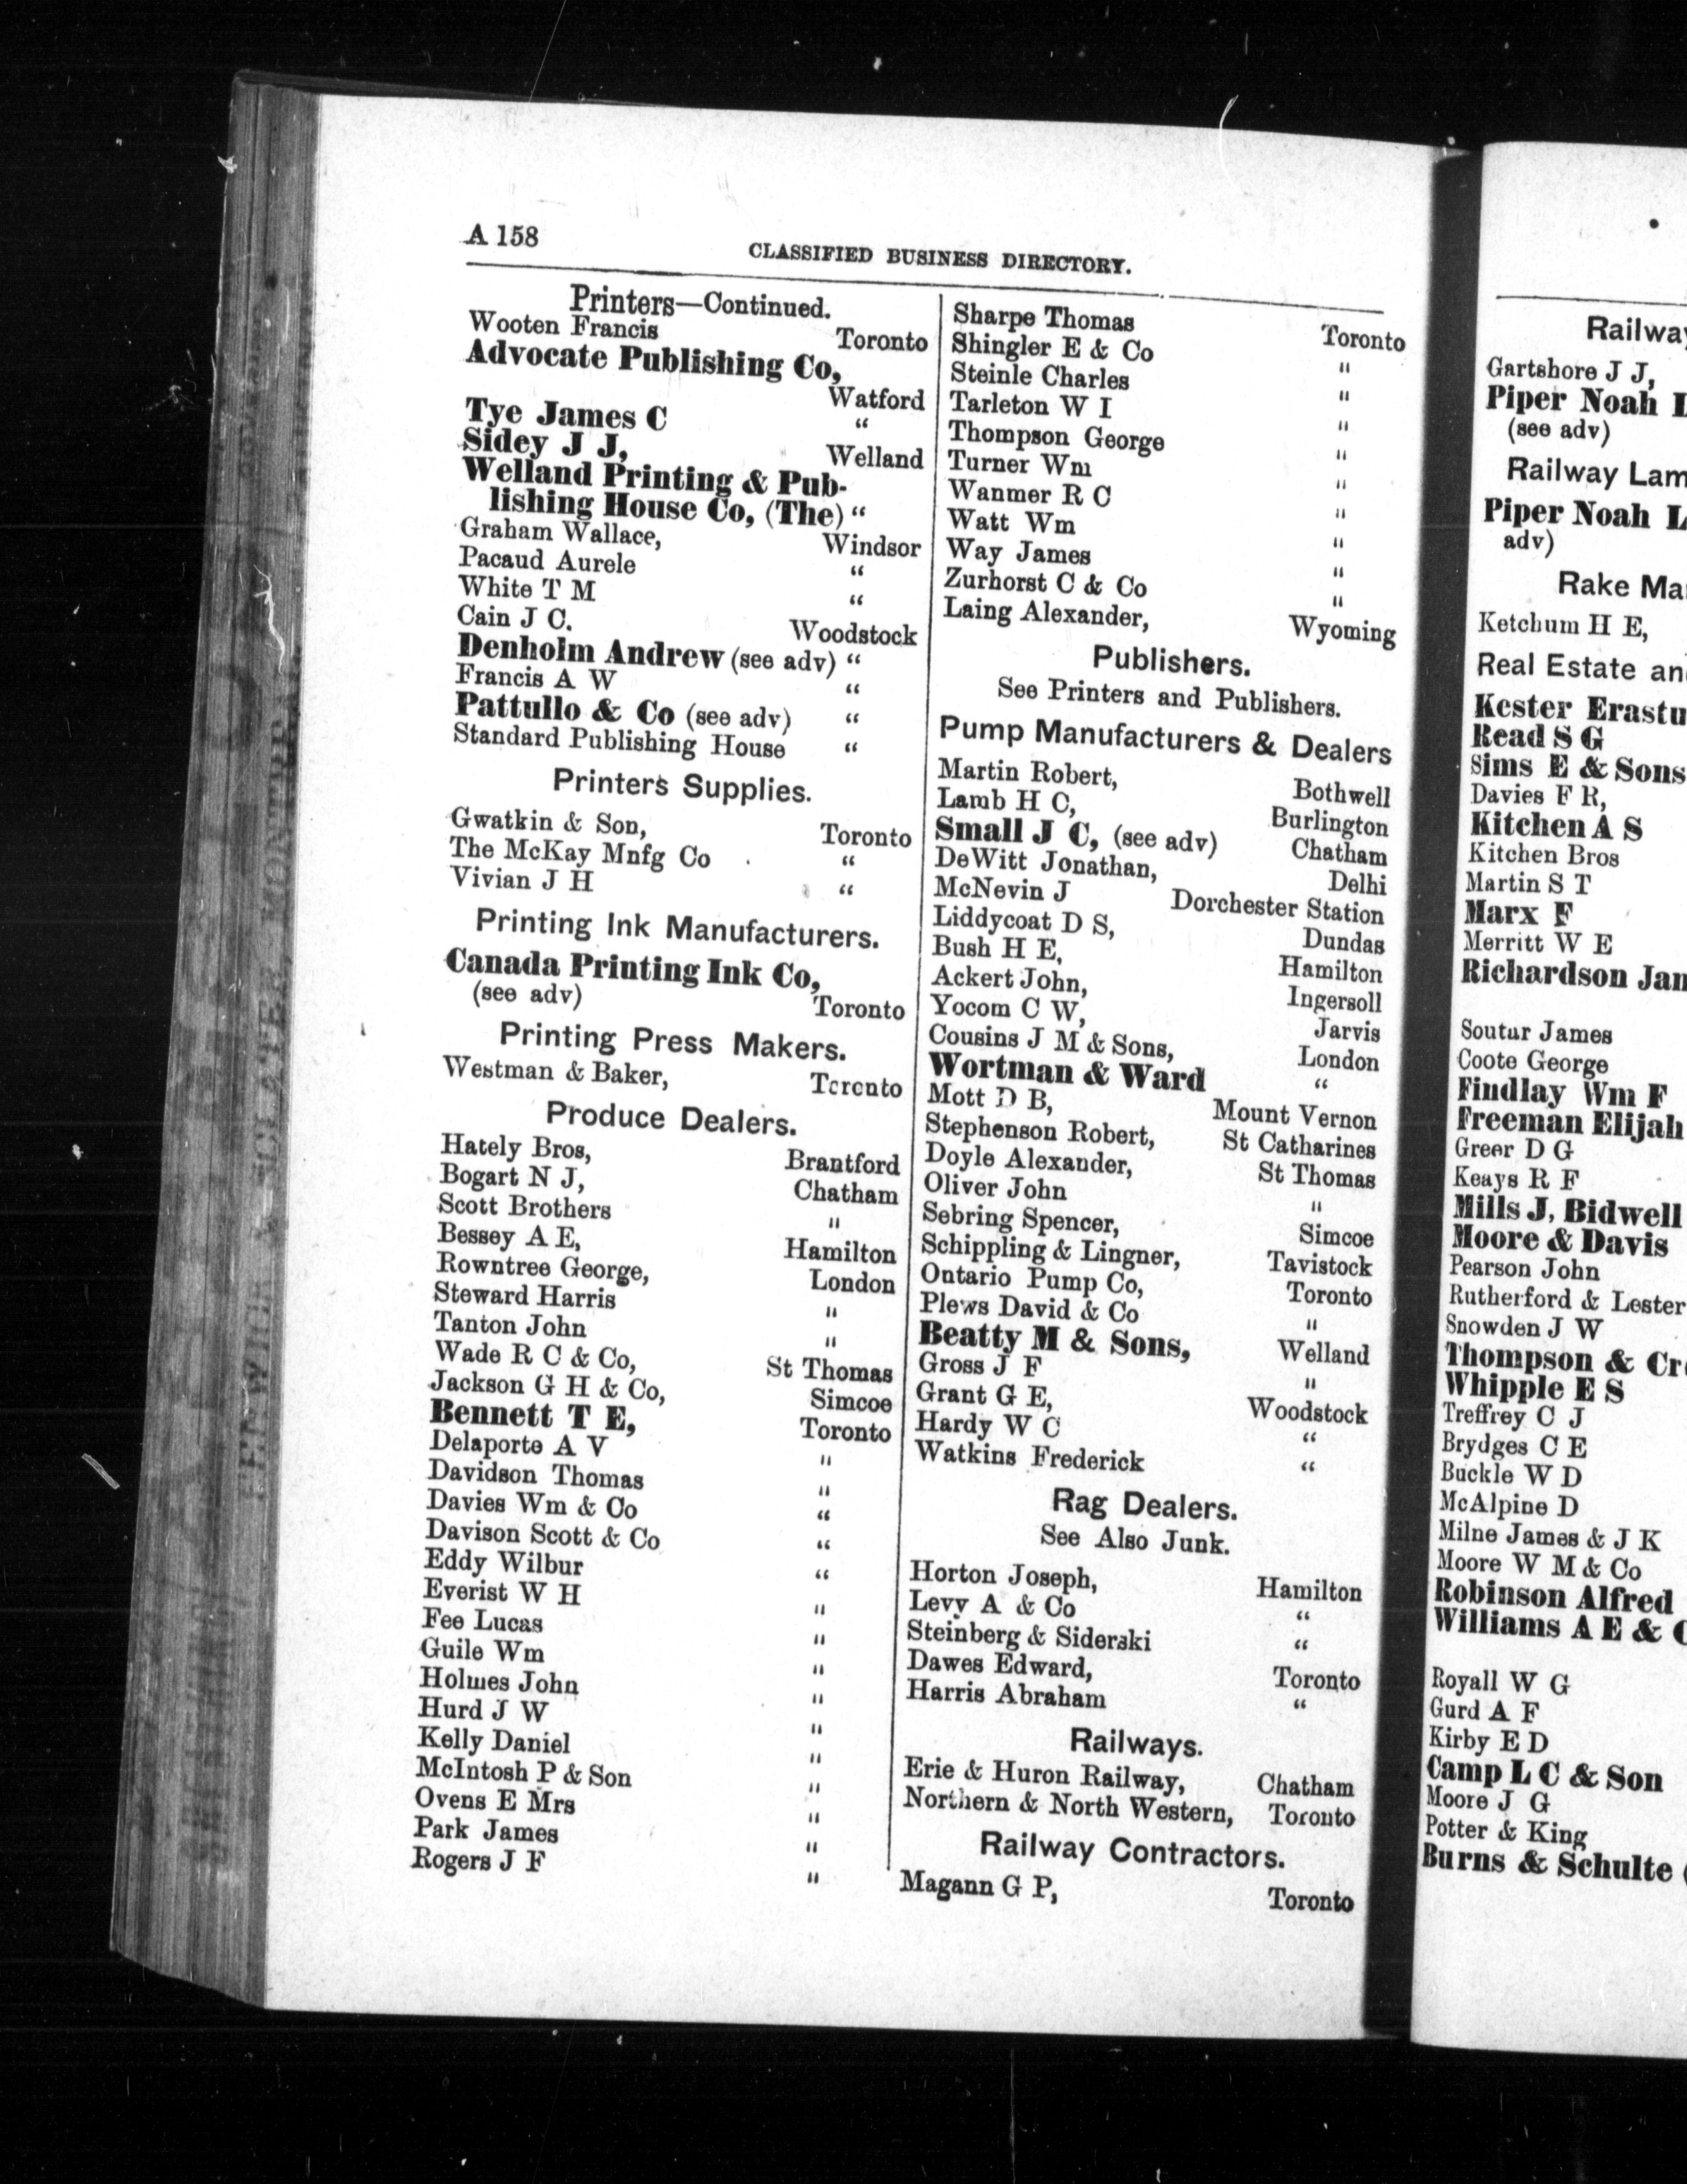 A 158
CLASSIFIED BUSINESS DIRECTORY.
Printers—Continued.
Wooten Francis Toronto
Advocate Publishing Co,
Watford
Tye James C “
Sidey J J, Welland
Welland Printing & Pub-
lishing House Co, (The) “
Graham Wallace, Windsor
Pacaud Aurele “
White T M “
Cain J C. Woodstock
Denholm Andrew (see adv) “
Francis A W “
Pattullo & Co (see adv) “
Standard Publishing House “
Printers Supplies.
Gwatkin & Son, Toronto
The McKay Mnfg Co “
Vivian J H “
Printing Ink Manufacturers.
Canada Printing Ink Co,
(see adv) Toronto
Printing Press Makers.
Westman & Baker, Toronto
Produce Dealers.
Hately Bros, Brantford
Bogart N J, Chatham
Scott Brothers "
Bessey A E, Hamilton
Rowntree George, London
Steward Harris "
Tanton John "
Wade R C & Co, St Thomas
Jackson G H & Co, Simcoe
Bennett T E, Toronto
Delaporte A V "
Davidson Thomas "
Davies Wm & Co “
Davison Scott & Co “
Eddy Wilbur “
Everist W H "
Fee Lucas "
Guile Wm "
Holmes John "
Hurd J W "
Kelly Daniel "
McIntosh P & Son "
Ovens E Mrs "
Park James "
Rogers J F "
Sharpe Thomas Toronto
Shingler E & Co "
Steinle Charles "
Tarleton W I "
Thompson George "
Turner Wm "
Wanmer R C "
Watt Wm "
Way James "
Zurhorst C & Co "
Laing Alexander, Wyoming
Publishers.
See Printers and Publishers.
Pump Manufacturers & Dealers
Martin Robert, Bothwell
Lamb H C, Burlington
Small J C, (see adv) Chatham
DeWitt Jonathan, Delhi
McNevin J Dorchester Station
Liddycoat D S, Dundas
Bush H E, Hamilton
Ackert John, Ingersoll
Yocom C W, Jarvis
Cousins J M & Sons, London
Wortman & Ward “
Mott D B, Mount Vernon
Stephenson Robert, St Catharines
Doyle Alexander, St Thomas
Oliver John "
Sebring Spencer, Simcoe
Schippling & Lingner, Tavistock
Ontario Pump Co, Toronto
Plews David & Co "
Beatty M & Sons, Welland
Gross J F "
Grant G E, Woodstock
Hardy W C “
Watkins Frederick “
Rag Dealers.
See Also Junk.
Horton Joseph, Hamilton
Levy A & Co “
Steinberg & Sideraki “
Dawes Edward, Toronto
Harris Abraham “
Railways.
Erie & Huron Railway, Chatham
Northern & North Western, Toronto
Railway Contractors.
Magann G P, Toronto
Railway
Gartshore J J,
Piper Noah L
(see adv)
Railway Lam
Piper Noah L
adv)
Rake Ma
Ketchum H E,
Real Estate an
Kester Erastu
Read S G
Sims E & Sons
Davies F R,
Kitchen A S
Kitchen Bros
Martin S T
Marx F
Merritt W E
Richardson Jam
Soutar James
Coote George
Findlay Wm F
Freeman Elijah
Greer D G
Keays R F
Mills J, Bidwell
Moore & Davis
Pearson John
Rutherford & Lester
Snowden J W
Thompson & Cr
Whipple E S
Treffrey C J
Brydges C E
Buckle W D
McAlpine D
Milne James & J K
Moore W M & Co
Robinson Alfred
Williams A E & C
Royall W G
Gurd A F
Kirby E D
Camp L C & Son
Moore J G
Potter & King
Burns & Schulte (